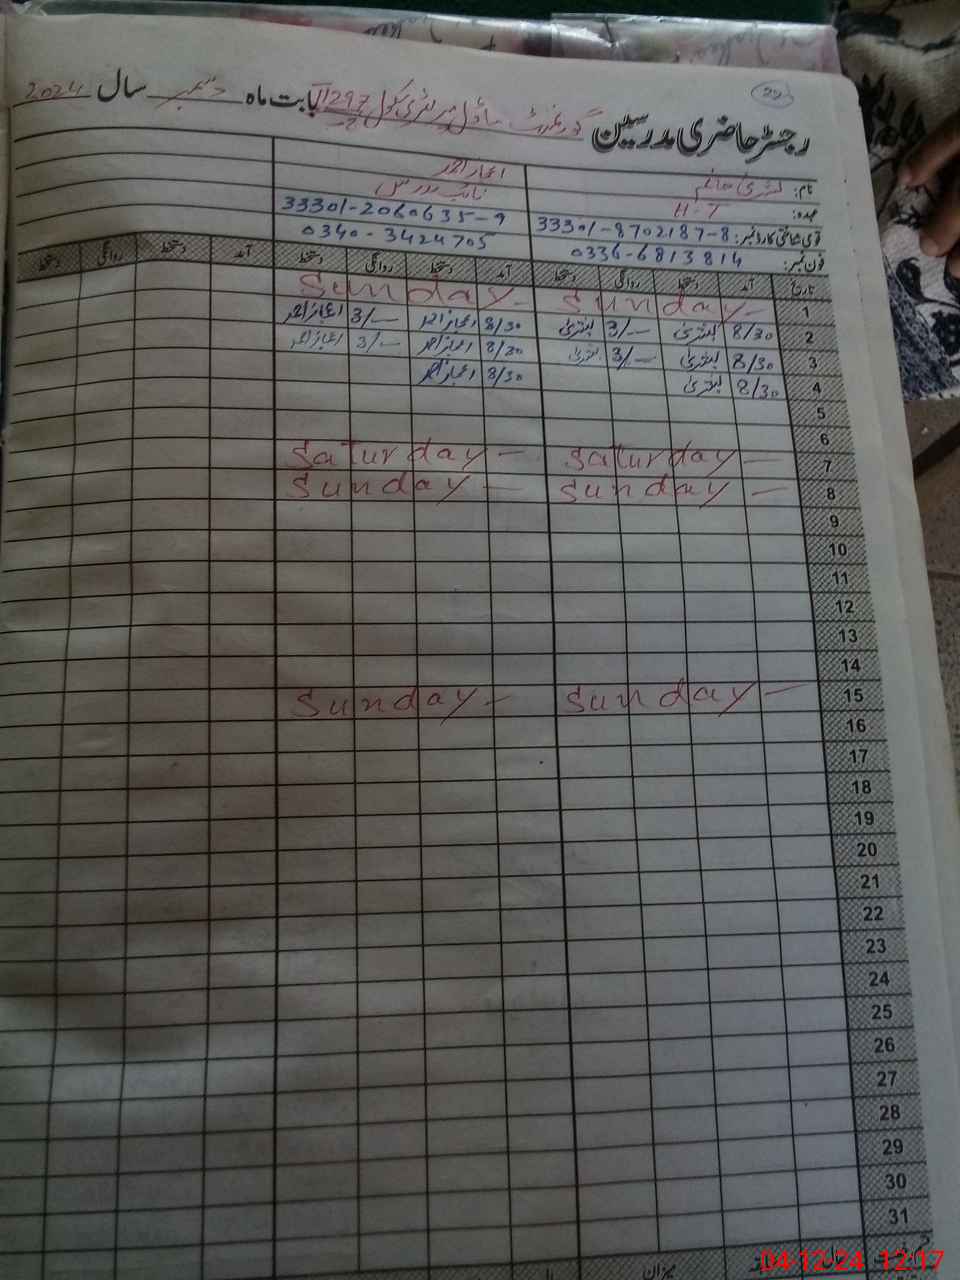 293
رجسٹر حاضری مدرسین گورنمنٹ ماڈل پرائمری سکول 297 بابت ماہ دسمبر سال 2024
نام: بشریٰ خانم اعجاز احمد
عہدہ: H-T نائب مدرس
قومی شناختی کارڈ نمبر: 33301-8702187-8 33301-2060635-9
فون نمبر: 0336-6813814 0340-3424705
تاریخ آمد دستخط روانگی دستخط آمد دستخط روانگی دستخط آمد دستخط روانگی دستخط
1 Sunday - Sunday -
2 8/30 بشریٰ 3/— بشریٰ 8/30 اعجاز احمد 3/— اعجاز احمد
3 8/30 بشریٰ 3/— بشریٰ 8/30 اعجاز احمد 3/— اعجاز احمد
4 8/30 بشریٰ 8/30 اعجاز احمد
5
6
7 Saturday — Saturday —
8 Sunday — Sunday —
9
10
11
12
13
14
15 Sunday — Sunday -
16
17
18
19
20
21
22
23
24
25
26
27
28
29
30
31
میزان
04-12-24 12:17